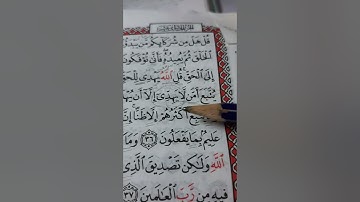 قُلْ هَلْ مِن شُرَكَآئِكُم مَّن يَبْدَؤُا
ٱلْخَلْقَ ثُمَّ يُعِيدُهُۥ فَأَنَّىٰ تُؤْفَكُونَ
إِلَى ٱلْحَقِّ قُلِ ٱللَّهُ يَهْدِى لِلْحَقِّ
يُتَّبَعَ أَمَّن لَّا يَهِدِّىٓ إِلَّآ أَن
يَتَّبِعُ أَكْثَرُهُمْ إِلَّا ظَنًّا إِنَّ
عَلِيمٌۢ بِمَا يَفْعَلُونَ ٣٦ وَمَا
ٱللَّهِ وَلَٰكِن تَصْدِيقَ ٱلَّذِى
فِيهِ مِن رَّبِّ ٱلْعَٰلَمِينَ ٣٧